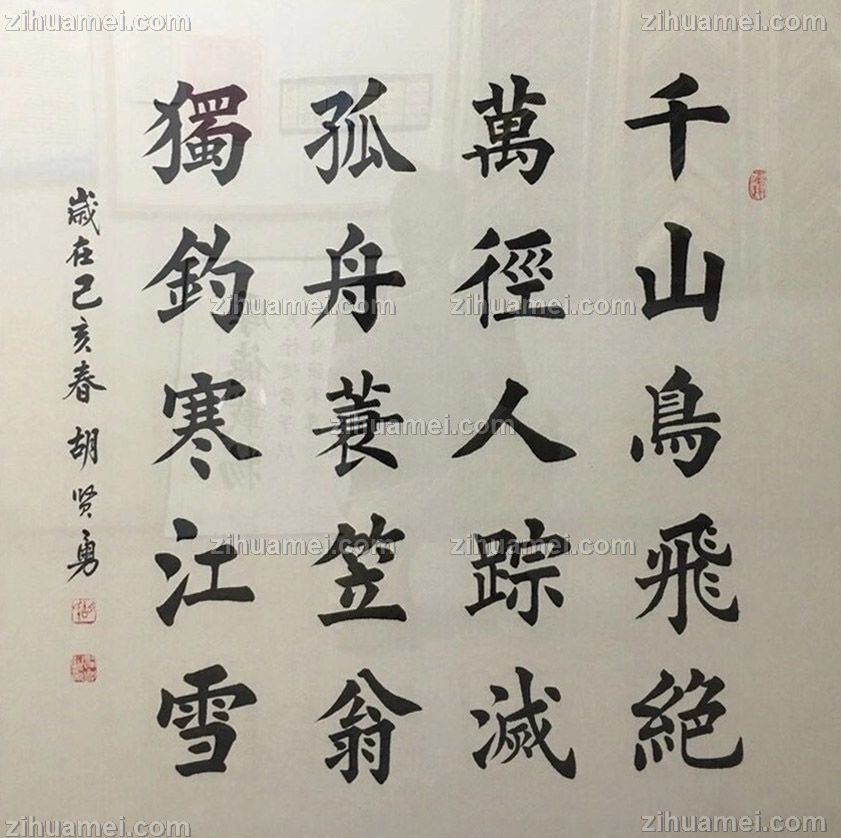 千山鳥飛絕
萬徑人踪滅
孤舟蓑笠翁
獨釣寒江雪
歲在己亥春 胡贤勇
zihuamei.com
zihuamei.com
zihuamei.com
zihuamei.com
zihuamei.com
zihuamei.com
zihuamei.com
zihuamei.com
zihuamei.com
zihuamei.com
zihuamei.com
zihuamei.com
zihuamei.com
zihuamei.com